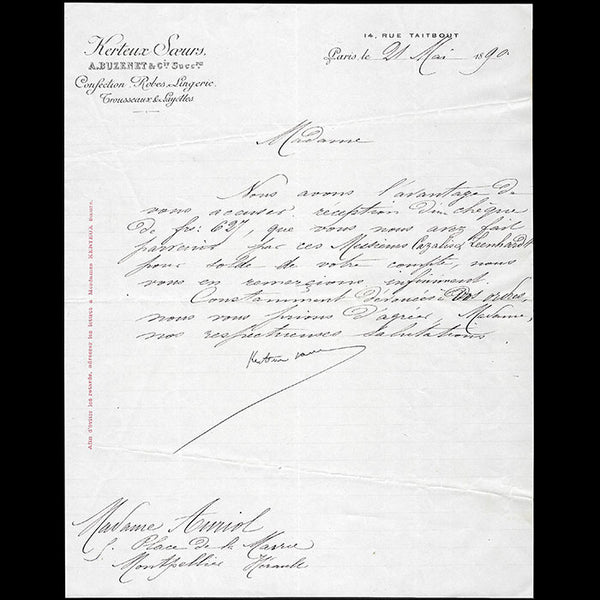 Kerteux Sœurs.
A. BUZENET & Cie Succrs
Confection. Robes. Lingerie.
Trousseaux & Layettes
14, RUE TAITBOUT
Paris, le 21 Mai 1890
Madame
Nous avons l'avantage de
vous accuser réception d'un chèque
de frs: 627, que vous nous avez fait
parvenir par ces Messieurs Cazalis & Leenhardt
pour solde de votre compte, nous
vous en remercions infiniment.
Constamment dévouées à vos ordres,
nous vous prions d'agréer, Madame,
nos respectueuses salutations
Kerteux sœurs
Afin d'éviter les retards, adresser les lettres à Mesdames KERTEUX Sœurs.
Madame Auriol
5. Place de la Mairie
Montpellier Hérault